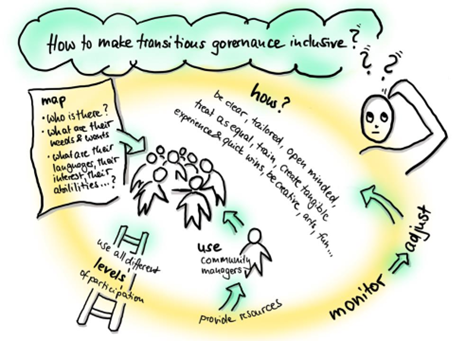 How to make transitions governance inclusive?
? ? ?
map
• Who is there?
• What are their
needs & wants
• what are their
languages, their
interest, their
abilities...?
how?
be clear, tailored, open minded,
treat as equal, train, create tangible
experience & quick wins, be creative, arts, fun...
use
community
managers
provide resources
use all different
levels
of participation
monitor
adjust